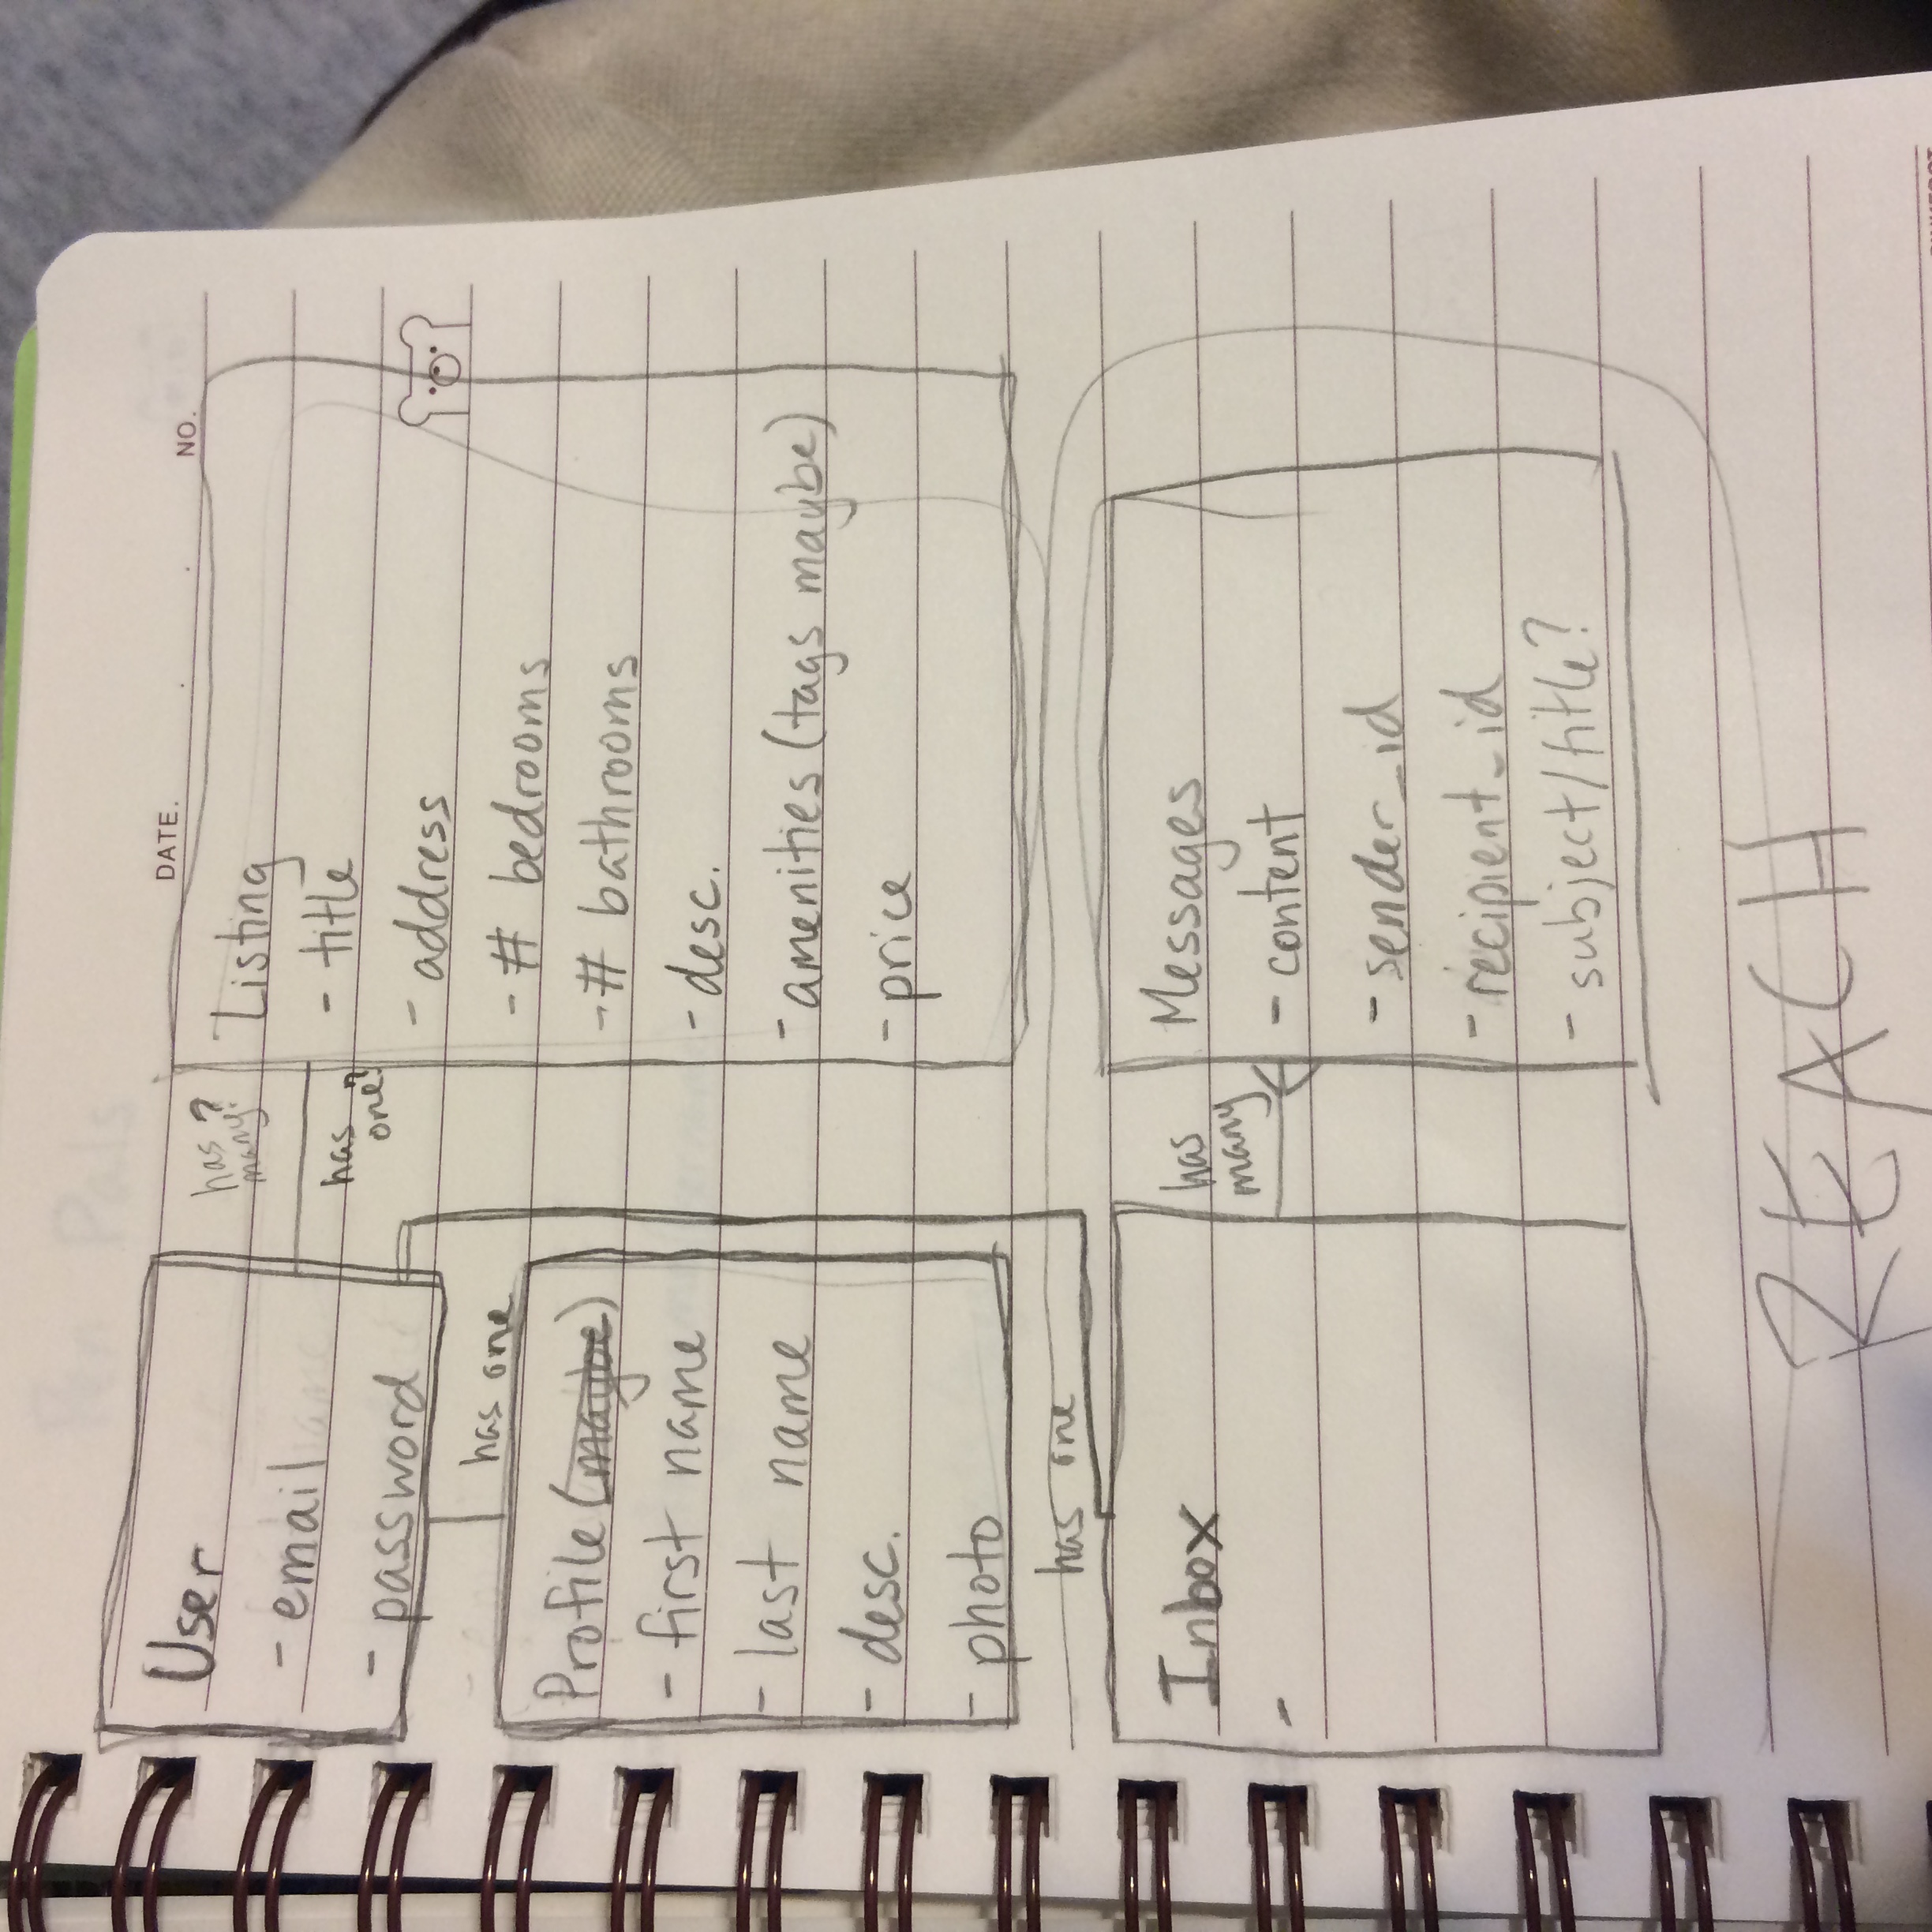 Pen Pals
DATE.
NO.
User
- email
- password
has many?
has one?
Listing
- title
- address
- # bedrooms
- # bathrooms
- desc.
- amenities (tags maybe)
- price
has one
Profile (maybe)
- first name
- last name
- desc.
- photo
has one
Inbox
-
has
many
Messages
- content
- sender_id
- recipient_id
- subject/title?
REACH